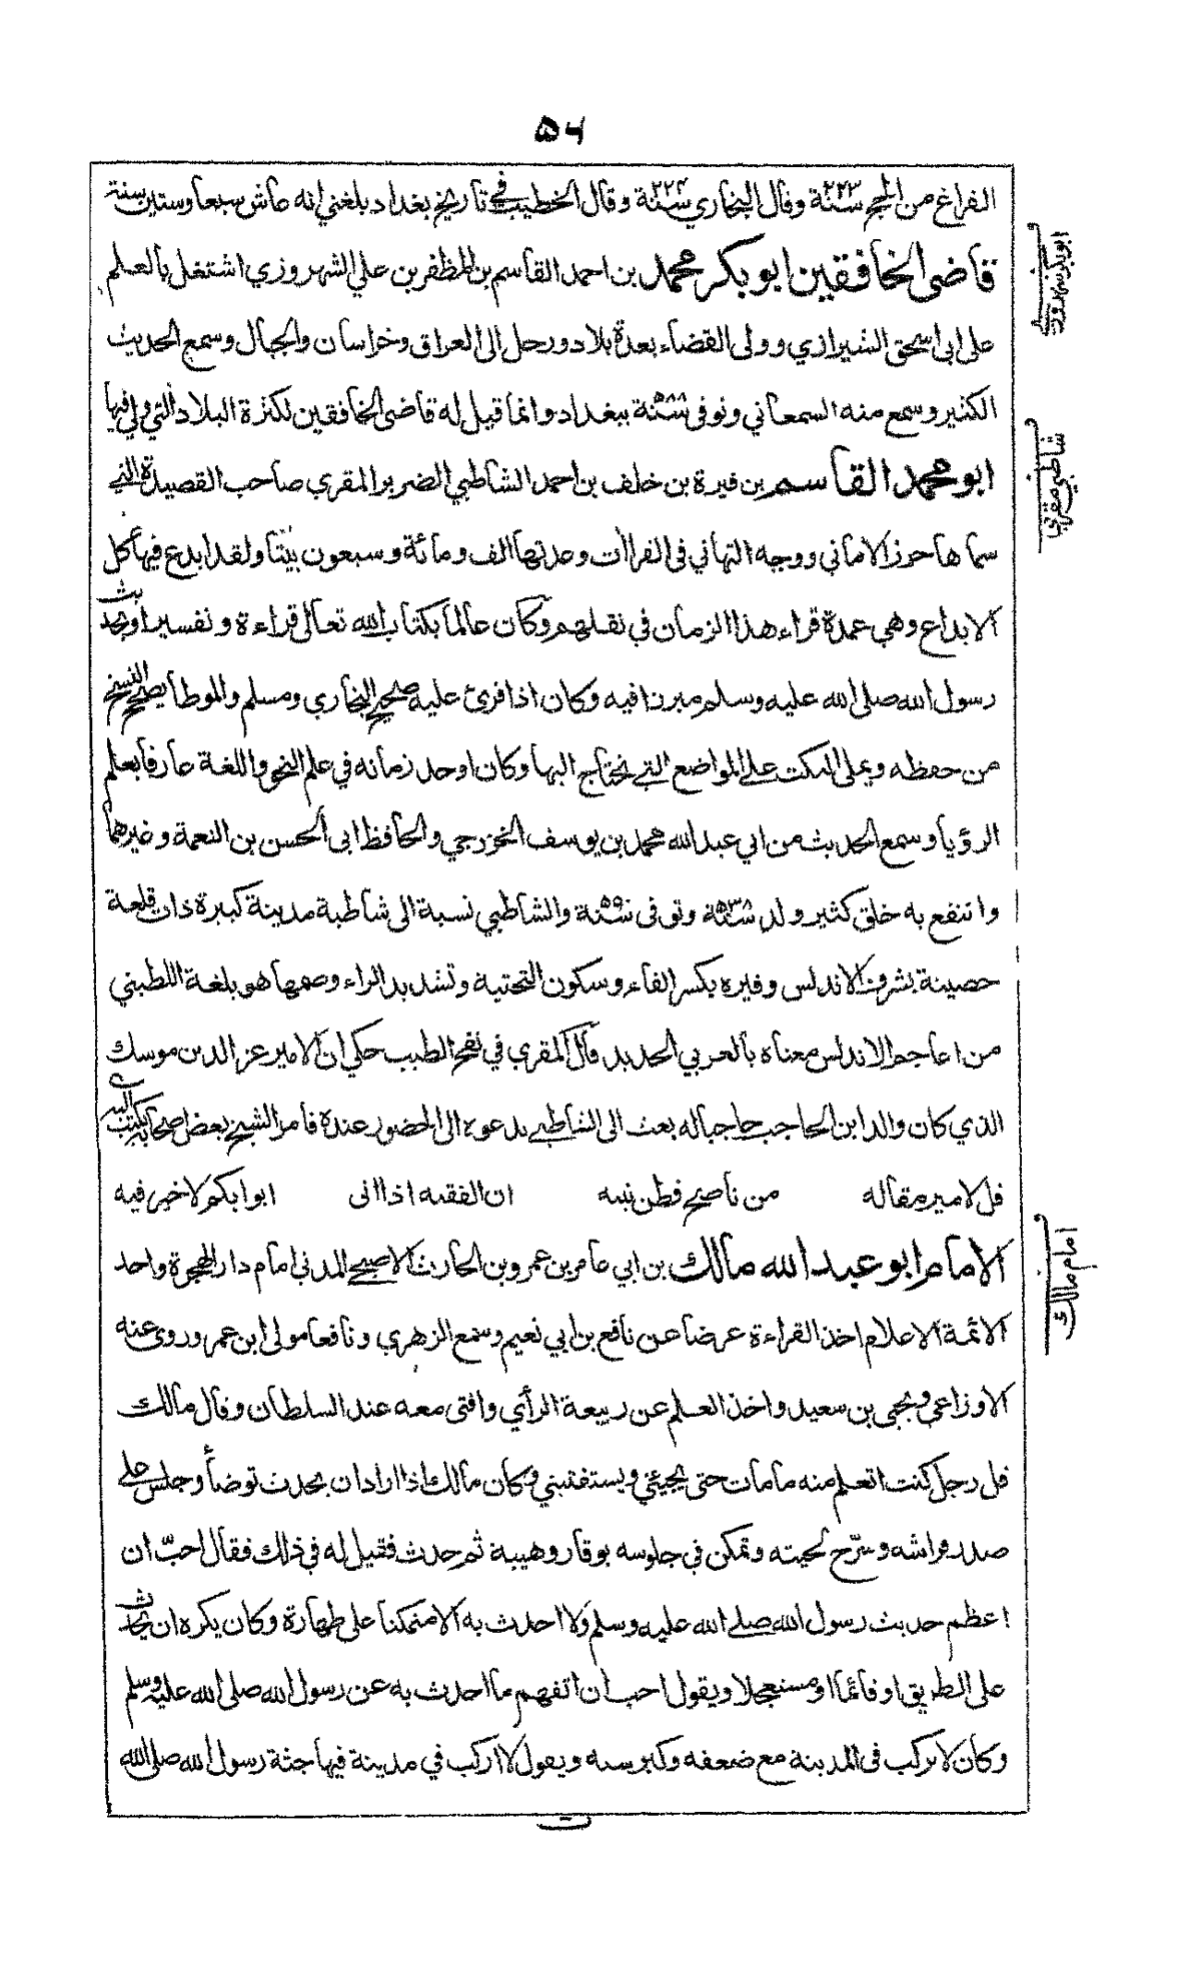 ٥٦
الفراغ من الحج سنة ٢٢٣ وقال البخاري سنة ٢٢٤ وقال الخطيب في تاريخ بغداد بلغني انه عاش سبعا وستين سنة
قاضى الخافقين ابو بكر محمد بن احمد القاسم بن المظفر بن علي الشهروزي اشتغل بالعلم
على ابى اسحق الشيرازي وولى القضاء بعدة بلاد ورحل الى العراق وخراسان والجبال وسمع الحديث
الكثير وسمع منه السمعاني وتوفى سنة ببغداد وانما قيل له قاضى الخافقين لكثرة البلاد التي ولي فيها
ابو محمد القاسم بن فيرة بن خلف بن احمد الشاطبي الضرير المقري صاحب القصيدة التي
سماها حرز الاماني ووجه التهاني فى القراأت وعدتها الف ومائة وسبعون بيتا ولقد ابدع فيها كل
الابداع وهي عمدة قراء هذا الزمان في نقلهم وكان عالما بكتاب الله تعالى قراءة وتفسيرا وبحديث
رسول الله صلى الله عليه وسلم مبرزا فيه وكان اذا قرئ عليه صحيح البخاري ومسلم والموطأ يصحح النسخ
من حفظه ويملى النكت على المواضع التي تحتاج اليها وكان اوحد زمانه في علم النحو واللغة عارفا بعلم
الرؤيا وسمع الحديث من ابي عبد الله محمد بن يوسف الخزرجي والحافظ ابى الحسن بن النعمة وغيرهما
وانتفع به خلق كثير ولد سنة ٥٣٨ وتوفى سنة ٥٩٠ والشاطبي نسبة الى شاطبة مدينة كبيرة ذات قلعة
حصينة بشرق الاندلس وفيره بكسر الفاء وسكون التحتية وتشديد الراء وضمها هو بلغة اللطيني
من اعاجم الاندلس معناه بالعربي الحديد قال المقري في نفح الطيب حكي ان الامير عز الدين موسك
الذي كان والد ابن الحاجب حاجبا له بعث الى الشاطبي يدعوه الى الحضور عنده فامر الشيخ بعض اصحابه يكتب اليه
قل لامير مقاله من ناصح فطن نبيه ان الفقيه اذا اتى ابوابكم لا خير فيه
الامام ابو عبد الله مالك بن ابي عامر بن عمرو بن الحارث الاصبحي المدني امام دار الهجرة واحد
الائمة الاعلام اخذ القراءة عرضا عن نافع بن ابي نعيم وسمع الزهري ونافعا مولى ابن عمر وروى عنه
الاوزاعي ويحيى بن سعيد واخذ العلم عن ربيعة الرأي وافتى معه عند السلطان وقال مالك
قل رجل كنت اتعلم منه ما مات حتى يجيئني ويستفتيني وكان مالك اذا اراد ان يحدث توضأ وجلس على
صدر فراشه وسرّح لحيته وتمكن في جلوسه بوقار وهيبة ثم حدث فقيل له في ذلك فقال احبّ ان
اعظم حديث رسول الله صلى الله عليه وسلم ولا احدث به الا متمكنا على طهارة وكان يكره ان يحدث
على الطريق او قائما او مستعجلا ويقول احب ان اتفهم ما احدث به عن رسول الله صلى الله عليه وسلم
وكان لا يركب فى المدينة مع ضعفه وكبر سنه ويقول لا اركب في مدينة فيها جثة رسول الله صلى الله
ابوبكر شهروزي
شاطبي مقري
امام مالك